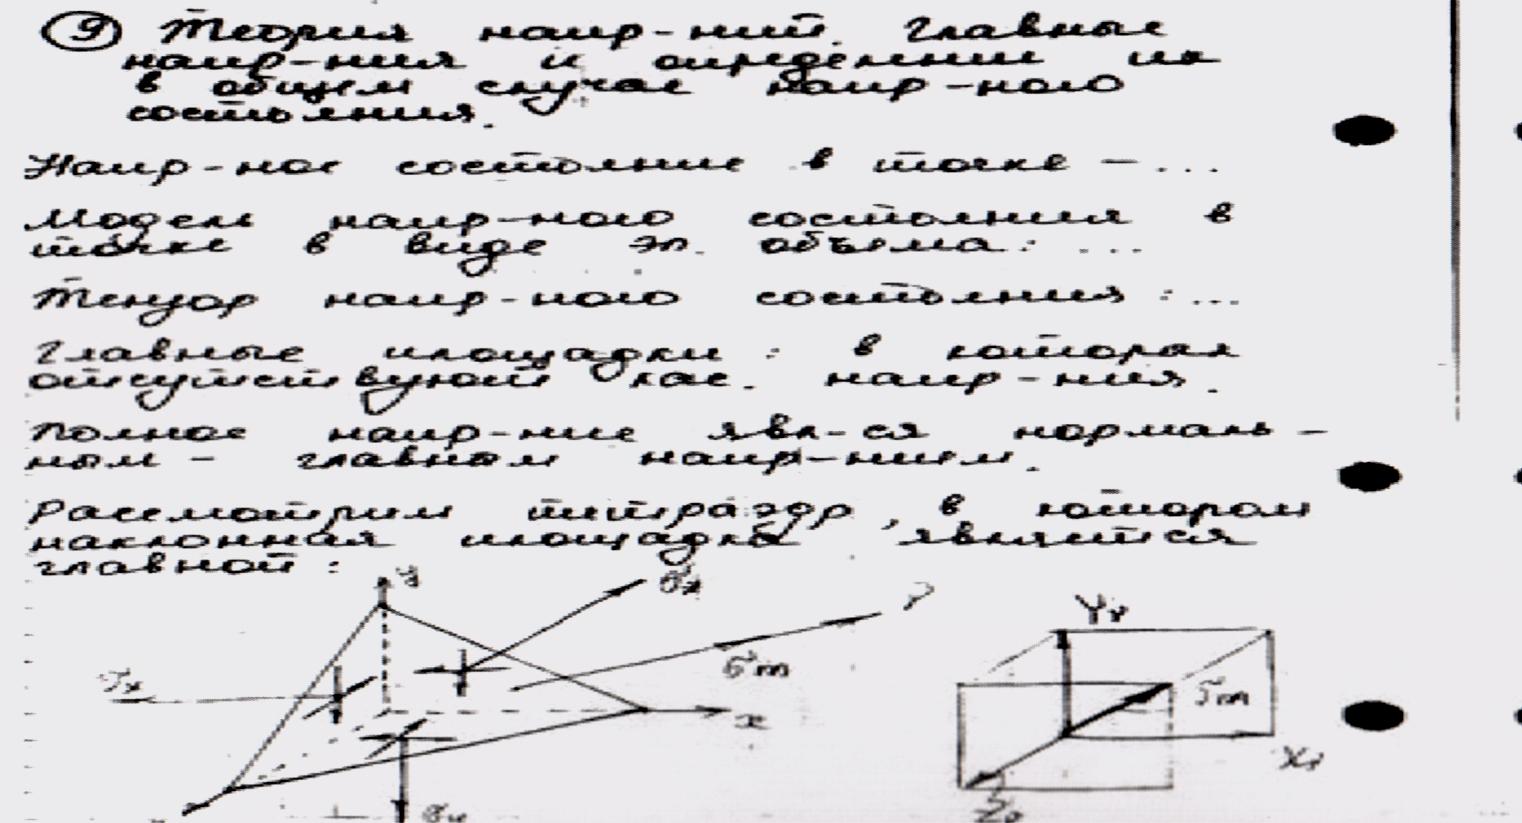 9 Теория напр-ний. Главные
напр-ния и определение их
в общем случае напр-ного
состояния.
Напр-ное состояние в точке – ...
Модель напр-ного состояния в
точке в виде эл. объема: ...
Тензор напр-ного состояния: ...
Главные площадки: в которых
отсутствуют кас. напр-ния.
Полное напр-ние явл-ся нормаль-
ным – главным напр-нием.
Рассмотрим тетраэдр, в котором
наклонная площадка является
главной:
y
σz
P
σm
σx
x
σy
Yν
σm
Xν
Zν